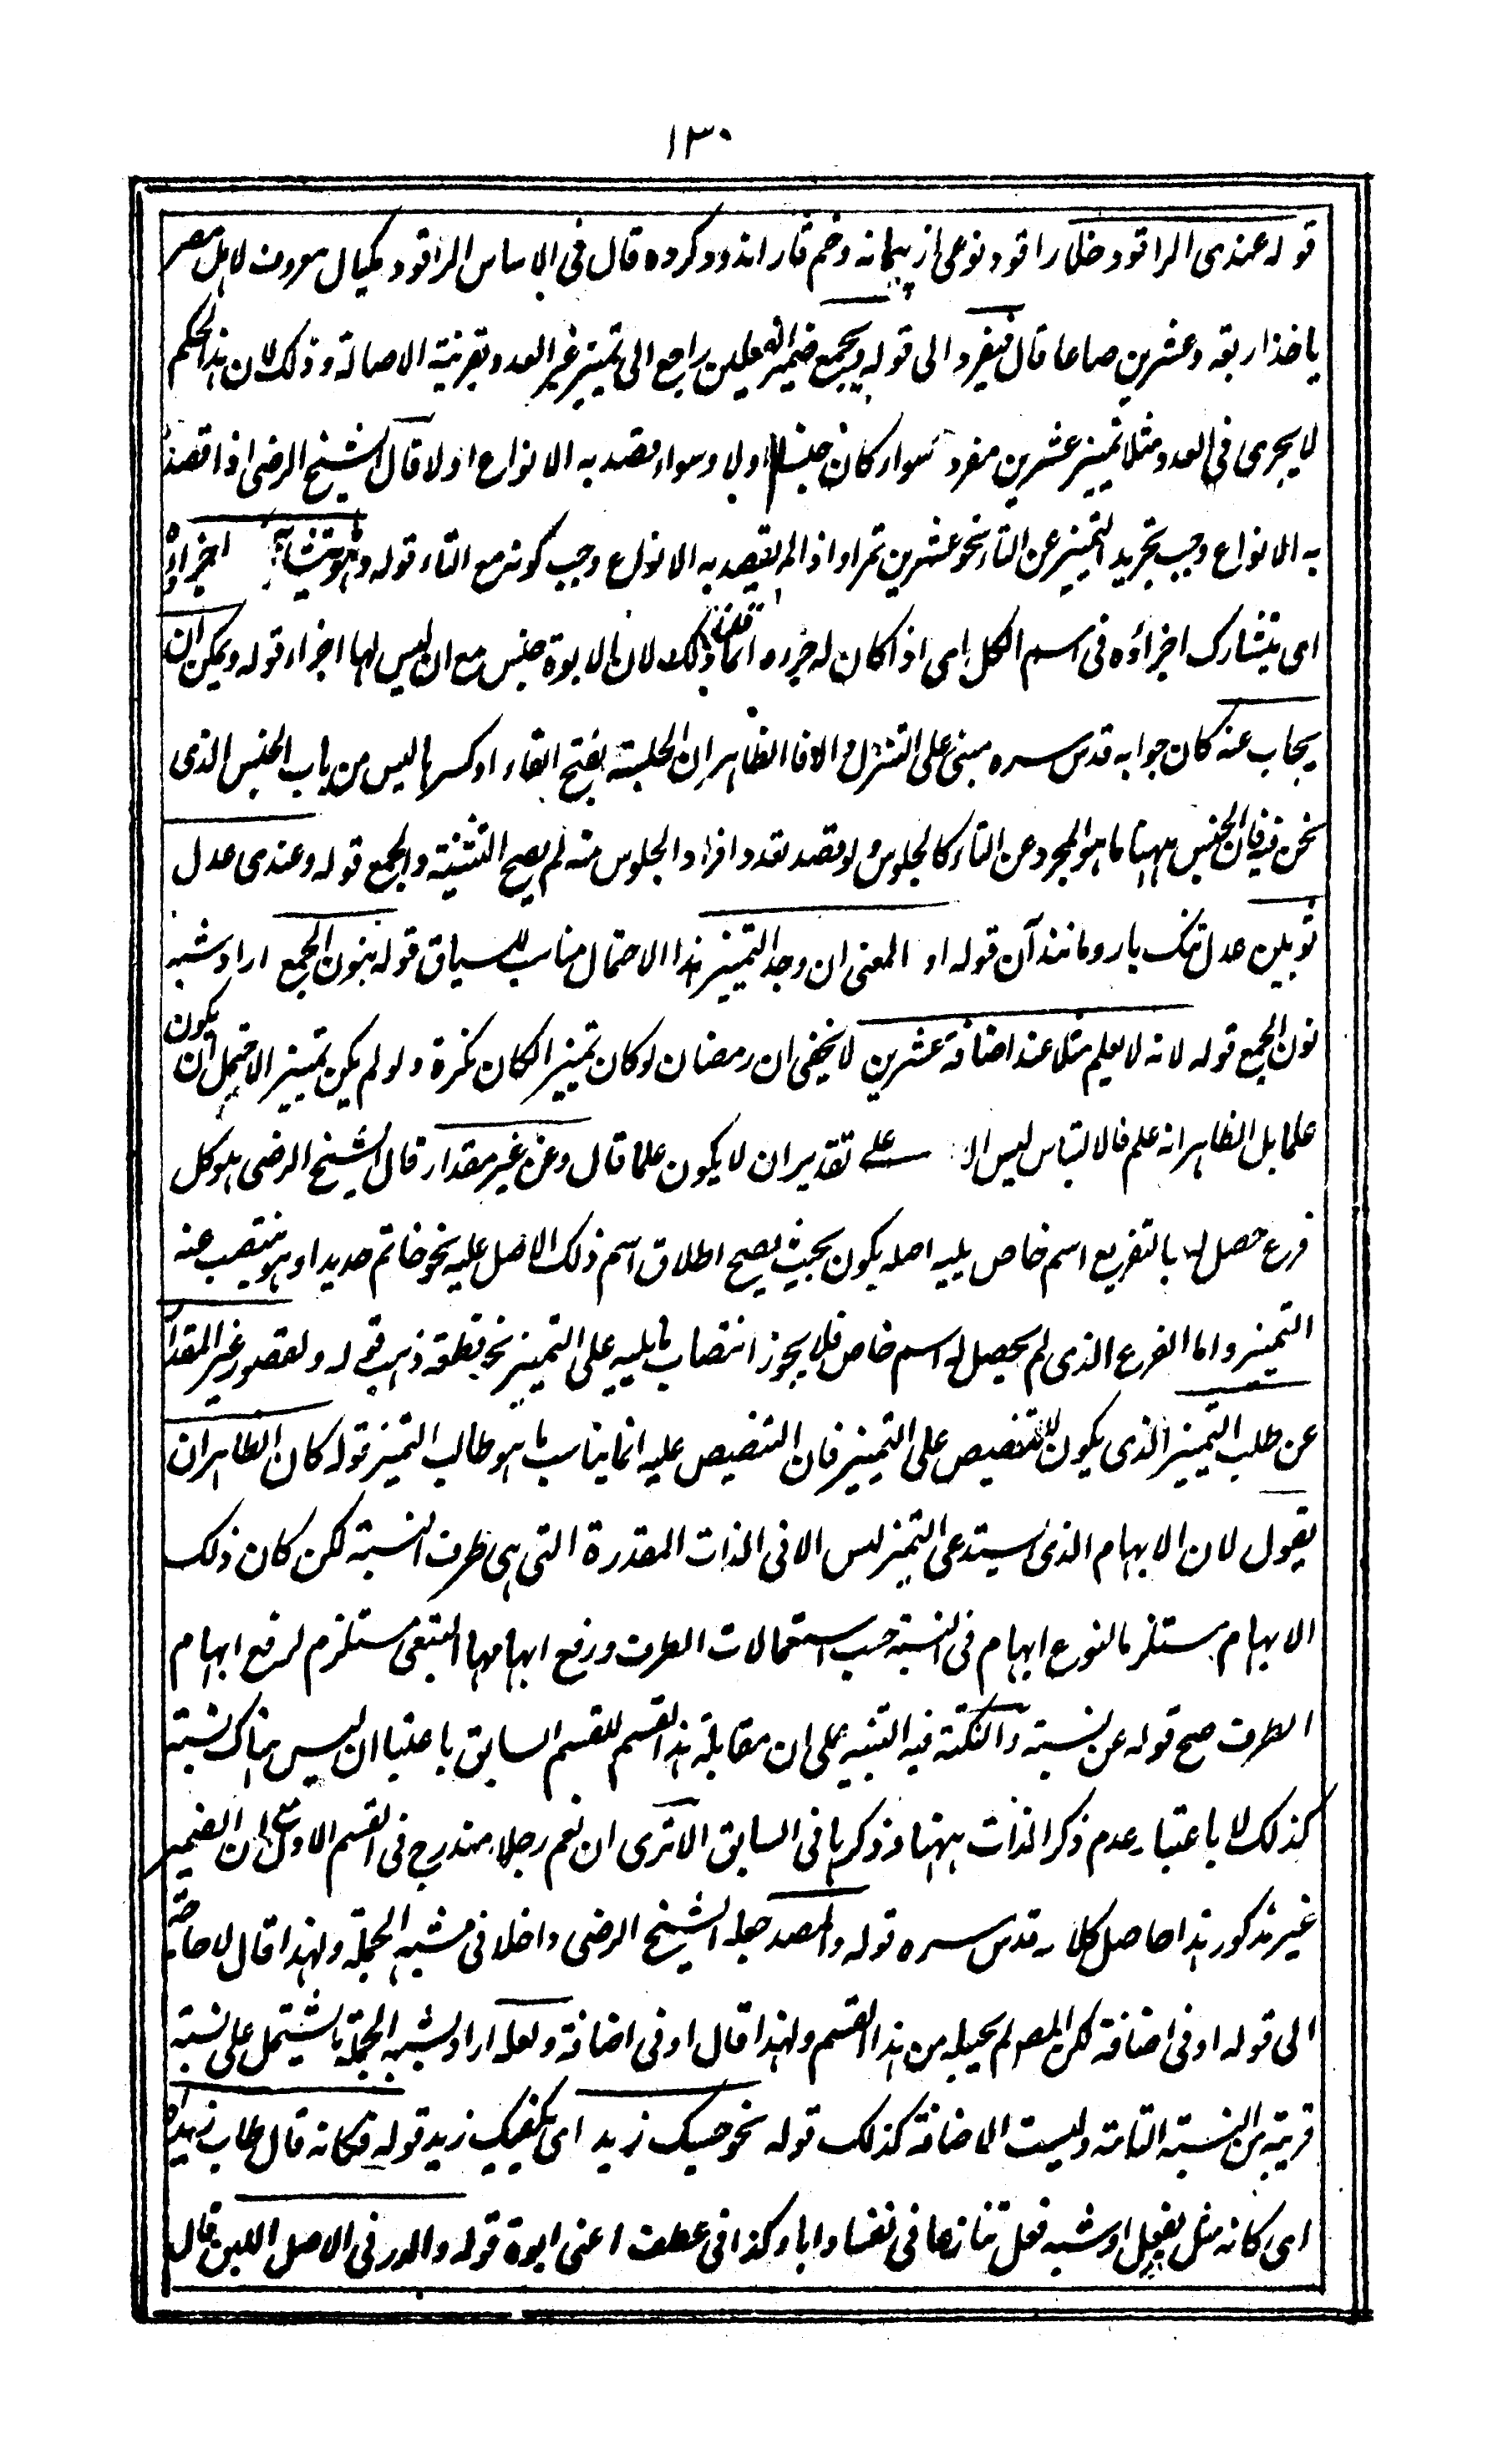 ١٣٠
قوله عندى الراقود خلا راقود نوعى از پيمانه وخم قار اندود كرده قال فى الاساس الراقود مكيال معروف لاهل مصر
ياخذ اربعة وعشرين صاعا قال فيفرد الى قوله ويجمع ضمير الفعلين راجع الى تميز غير العدد بقرينة الاصالة وذلك لان هذا الحكم
لا يجرى فى العدد مثلا تميز عشرين مفرد سواء كان جنسا اولا وسواء قصد به الانواع اولا قال الشيخ الرضى اذا قصد
به الانواع وجب تجريد التميز عن التاء نحو عشرين تمرا واذا لم يقصد به الانواع وجب كونه مع التاء قوله وهو يتشابه اجزاؤه
اى يتشارك اجزاؤه فى اسم الكل اى اذا كان له جزء انما قلنا ذلك لان الابوة جنس مع ان ليس لها اجزاء قوله ويمكن ان
يجاب عنه كان جوابه قدس سره مبنى على التنزل والا فالظاهر ان الجلسة بفتح الفاء او كسرها ليس من باب الجنس الذى
نحن فيه فان الجنس ههنا ما هو المجرد عن التاء كالجلوس ولو قصد تعدد افراد الجلوس منه لم يصح التثنية والجمع قوله وعندى عدل
ثوبين عدل تنك بار ومانند آن قوله او المعنى ان وجد التميز هذا الاحتمال مناسب للسياق قوله بنون الجمع اراد شبه
نون الجمع قوله لانه لا يعلم مثلا عند اضافة عشرين لا يخفى ان رمضان لو كان تميزا لكان نكرة ولو لم يكن تميزا لاحتمل ان يكون
علما بل الظاهر انه علم فالالتباس ليس الا على تقدير ان لا يكون علما قال وعن غير مقدار قال الشيخ الرضى هو كل
فرع حصل له بالتفريع اسم خاص يليه اصله يكون بحيث يصح اطلاق اسم ذلك الاصل عليه نحو خاتم حديدا وهو ينتصب عنه
التميز واما الفرع الذى لم يحصل له اسم خاص فلا يجوز انتصاب ما يليه على التميز نحو قطعة ذهب قوله ولقصور غير المقدار
عن طلب التميز الذى يكون للتنصيص على التميز فان التنصيص عليه انما يناسب ما هو طالب التميز قوله كان الظاهر ان
يقول لان الابهام الذى يستدعى التميز ليس الا فى الذات المقدرة التى هى طرف النسبة لكن كان ذلك
الابهام مستلزما لنوع ابهام فى النسبة حسب استعمالات الطرف ورفع ابهامها التبعى مستلزم لرفع ابهام
الطرف صح قوله عن نسبة والنكتة فيه التنبيه على ان مقابلة هذا القسم للقسم السابق باعتبار ان ليس هناك نسبة
كذلك لا باعتبار عدم ذكر الذات ههنا وذكرها فى السابق الا ترى ان نعم رجلا مندرج فى القسم الاول مع ان الضمير
غير مذكور هذا حاصل كلامه قدس سره قوله والمصدر جعله الشيخ الرضى داخلا فى مشبه الجملة ولهذا قال لا حاجة
الى قوله او فى اضافة لكن المص لم يجعله من هذا القسم ولهذا قال او فى اضافة ولعله اراد بشبه الجملة ما يشتمل على نسبة
قريبة من النسبة التامة وليست الاضافة كذلك قوله نحو حسبك زيد اى يكفيك زيد قوله فكانه قال طاب زيد اه
اى كانه مثل بفعل او شبه فعل تنازعا فى نفسا وابا وكذا فى عطف اعنى ابوة قوله والدر فى الاصل اللبن قال